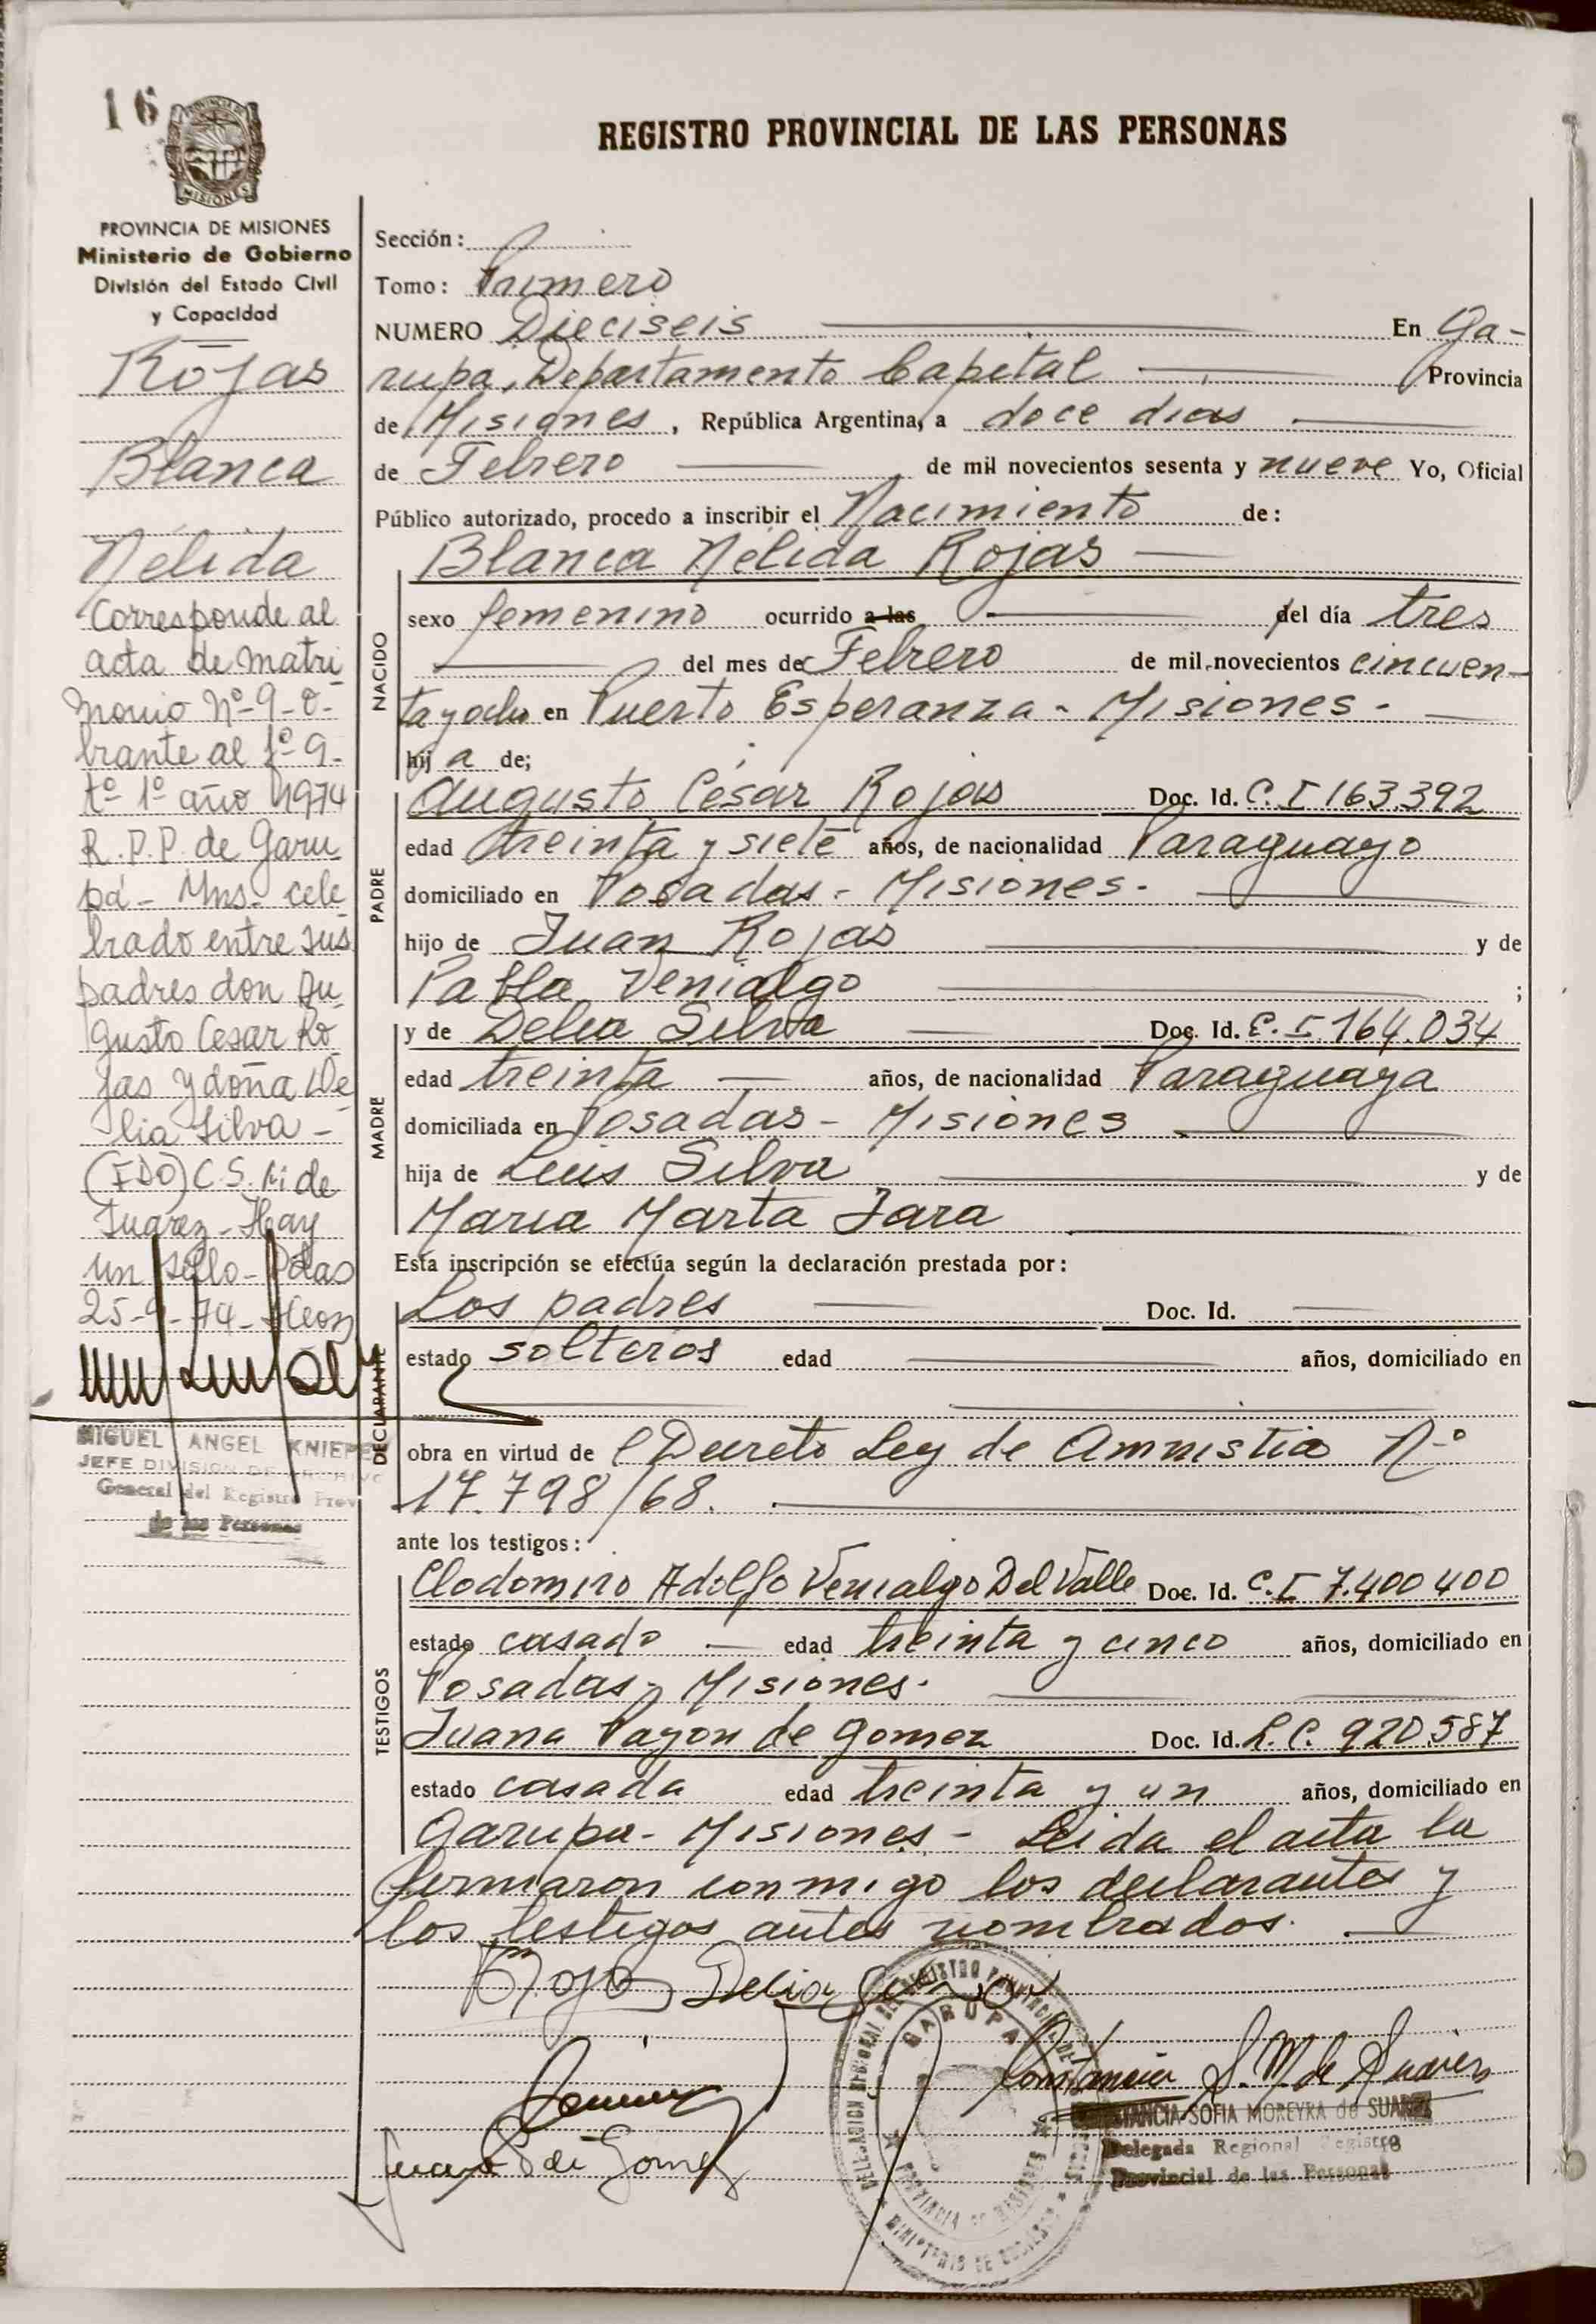 16
REGISTRO PROVINCIAL DE LAS PERSONAS
PROVINCIA DE MISIONES
MISIONES
PROVINCIA DE MISIONES
Ministerio de Gobierno
División del Estado Civil
y Capacidad
Rojas
Blanca
Nélida
Corresponde al
acta de matri
monio Nº 9 - o-
brante al fº 9-
tº 1º año 1974
R.P.P. de Garu
pá - Mns - cele
brado entre sus
padres don Au
gusto Cesar Ro
jas y doña De
lia Silva -
(FDO) C.S. M de
Juarez - Hay
un sello - Pdas
25-9-74
MIGUEL ANGEL KNIEPE
JEFE DIVISION DE ARCHIVO
General del Registro Prov
de las Personas
Sección:
Tomo: Primero
NUMERO Dieciseis En Ga-
rupa, Departamento Capital Provincia
de Misiones, República Argentina, a doce dias
de Febrero de mil novecientos sesenta y nueve Yo, Oficial
Público autorizado, procedo a inscribir el Nacimiento de:
Blanca Nélida Rojas
NACIDO
sexo femenino ocurrido a las del día tres
del mes de Febrero de mil novecientos cincuen-
ta y ocho en Puerto Esperanza - Misiones -
hij a de;
PADRE
Augusto César Rojas Doc. Id. C. I 163.392
edad treinta y siete años, de nacionalidad Paraguayo
domiciliado en Posadas - Misiones -
hijo de Juan Rojas y de
Pabla Venialgo ;
MADRE
y de Delia Silva Doc. Id. C. I. 164.034
edad treinta años, de nacionalidad Paraguaya
domiciliada en Posadas - Misiones
hija de Luis Silva y de
Maria Marta Jara
Esta inscripción se efectúa según la declaración prestada por:
DECLARANTE
Los padres Doc. Id.
estado solteros edad años, domiciliado en
obra en virtud de l Decreto Ley de Amnistia Nº
17.798/68.
ante los testigos:
TESTIGOS
Clodomiro Adolfo Venialgo Del Valle Doc. Id. C. I 7.400400
estado casado edad treinta y cinco años, domiciliado en
Posadas, Misiones.
Juana Payon de Gomez Doc. Id. L. C. 920.587
estado casada edad treinta y un años, domiciliado en
Garupa - Misiones - Leida el acta la
firmaron conmigo los declarantes y
los testigos antes nombrados.
Rojas Delia
GARUPA
PROVINCIA DE MISIONES
Constancia S. M. de Suárez
CONSTANCIA SOFIA MOREYRA de SUAREZ
Delegada Regional Registro
Provincial de las Personas
Juana P de Gomez